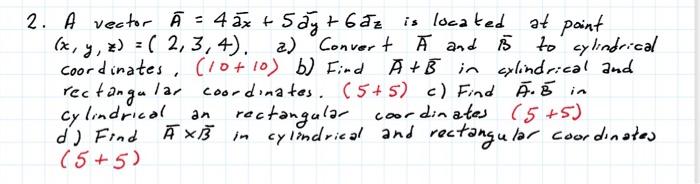 2. A vector Ā = 4 āx + 5 āy + 6 āz is located at point
(x, y, z) = ( 2, 3, 4). a) Convert Ā and B̄ to cylindrical
coordinates, (10 + 10) b) Find Ā + B̄ in cylindrical and
rectangular coordinates. (5 + 5) c) Find Ā. B̄ in
cylindrical an rectangular coordinates (5 + 5)
d) Find Ā × B̄ in cylindrical and rectangular coordinates
(5 + 5)